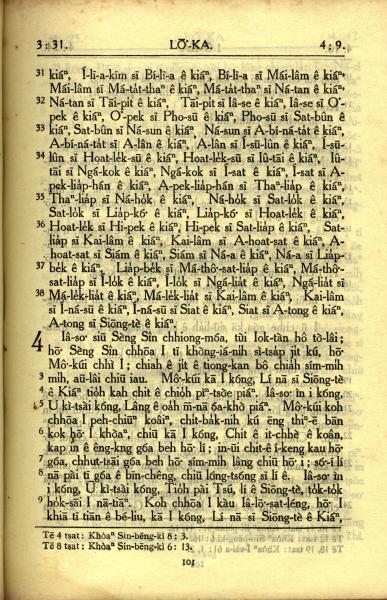 3 : 31. LŌ͘-KA. 4 : 9.
31 kiáⁿ, Í-lī-a-kim sī Bí-lī-a ê kiáⁿ, Bí-lī-a sī Mái-lâm ê kiáⁿ,
Mái-lâm sī Má-ta̍t-thaⁿ ê kiáⁿ, Má-ta̍t-thaⁿ sī Ná-tan ê kiáⁿ,
32 Ná-tan sī Tāi-pi̍t ê kiáⁿ, Tāi-pi̍t sī Iâ-se ê kiáⁿ, Iâ-se sī O͘-
pek ê kiáⁿ, O͘-pek sī Pho-sū ê kiáⁿ, Pho-sū sī Sat-bûn ê
33 kiáⁿ, Sat-bûn sī Ná-sun ê kiáⁿ, Ná-sun sī A-bí-ná-ta̍t ê kiáⁿ,
A-bí-ná-ta̍t sī A-lân ê kiáⁿ, A-lân sī Í-sū-lûn ê kiáⁿ, Í-sū-
34 lûn sī Hoat-le̍k-sū ê kiáⁿ, Hoat-le̍k-sū sī Iû-tāi ê kiáⁿ, Iû-
tāi sī Ngá-kok ê kiáⁿ, Ngá-kok sī Í-sat ê kiáⁿ, Í-sat sī A-
pek-lia̍p-hán ê kiáⁿ, A-pek-lia̍p-hán sī Thaⁿ-lia̍p ê kiáⁿ,
35 Thaⁿ-lia̍p sī Ná-ho̍k ê kiáⁿ, Ná-ho̍k sī Sat-lo̍k ê kiáⁿ,
Sat-lo̍k sī Lia̍p-kó͘ ê kiáⁿ, Lia̍p-kó͘ sī Hoat-le̍k ê kiáⁿ,
36 Hoat-le̍k sī Hi-pek ê kiáⁿ, Hi-pek sī Sat-lia̍p ê kiáⁿ, Sat-
lia̍p sī Kai-lâm ê kiáⁿ, Kai-lâm sī A-hoat-sat ê kiáⁿ, A-
hoat-sat sī Siám ê kiáⁿ, Siám sī Ná-a ê kiáⁿ, Ná-a sī Lia̍p-
37 be̍k ê kiáⁿ, Lia̍p-be̍k sī Má-thô͘-sat-lia̍p ê kiáⁿ, Má-thô͘-
sat-lia̍p sī Í-lo̍k ê kiáⁿ, Í-lo̍k sī Ngá-lia̍t ê kiáⁿ, Ngá-lia̍t sī
38 Má-le̍k-lia̍t ê kiáⁿ, Má-le̍k-lia̍t sī Kai-lâm ê kiáⁿ, Kai-lâm
sī Í-ná-sū ê kiáⁿ, Í-ná-sū sī Siat ê kiáⁿ, Siat sī A-tong ê kiáⁿ,
A-tong sī Siōng-tè ê kiáⁿ.
4 Iâ-so͘ siū Sèng Sîn chhiong-móa, tùi Iok-tàn hô tò-lâi;
2 hō͘ Sèng Sîn chhōa I tī khòng-iá-nih sì-tsa̍p ji̍t kú, hō͘
Mô͘-kúi chhì I; chiah ê ji̍t ê tiong-kan bô chia̍h sím-mih
3 mih, aū-lâi chiū iau. Mô͘-kúi kā I kóng, Lí nā sī Siōng-tè
4 ê Kiáⁿ tio̍h kah chit ê chio̍h pìⁿ-tsòe piáⁿ. Iâ-so͘ ìn i kóng,
5 Ū kì-tsài kóng, Lâng ê oa̍h m̄-nā óa-khò piáⁿ. Mô͘-kúi koh
chhōa I peh-chiūⁿ koâiⁿ, chi̍t-bak-nih kú ēng thiⁿ-ē bān
6 kok hō͘ I khòaⁿ, chiū kā I kóng, Chit ê it-chhè ê koân,
kap in ê êng-kng góa beh hō͘ lí; in-ūi chit ê í-keng kau hō͘
7 góa, chhut-tsāi góa beh hō͘ sím-mih lâng chiū hō͘ i; só͘-í lí
8 nā pài tī góa ê bīn-chêng, chiū lóng-tsóng sī lí ê. Iâ-so͘ ìn
i kóng, Ū kì-tsài kóng, Tio̍h pài Tsú, lí ê Siōng-tè, to̍k-to̍k
9 ho̍k-sāi I nā-tiāⁿ. Koh chhōa I kàu Iâ-lō͘-sat-léng, hō͘ I
khiā tī tiān ê bé-liu, kā I kóng, Lí nā sī Siōng-tè ê Kiáⁿ,
Tē 4 tsat: Khòaⁿ Sin-bēng-kì 8 : 3.
Tē 8 tsat: Khòaⁿ Sin-bēng-kì 6 : 13.
101